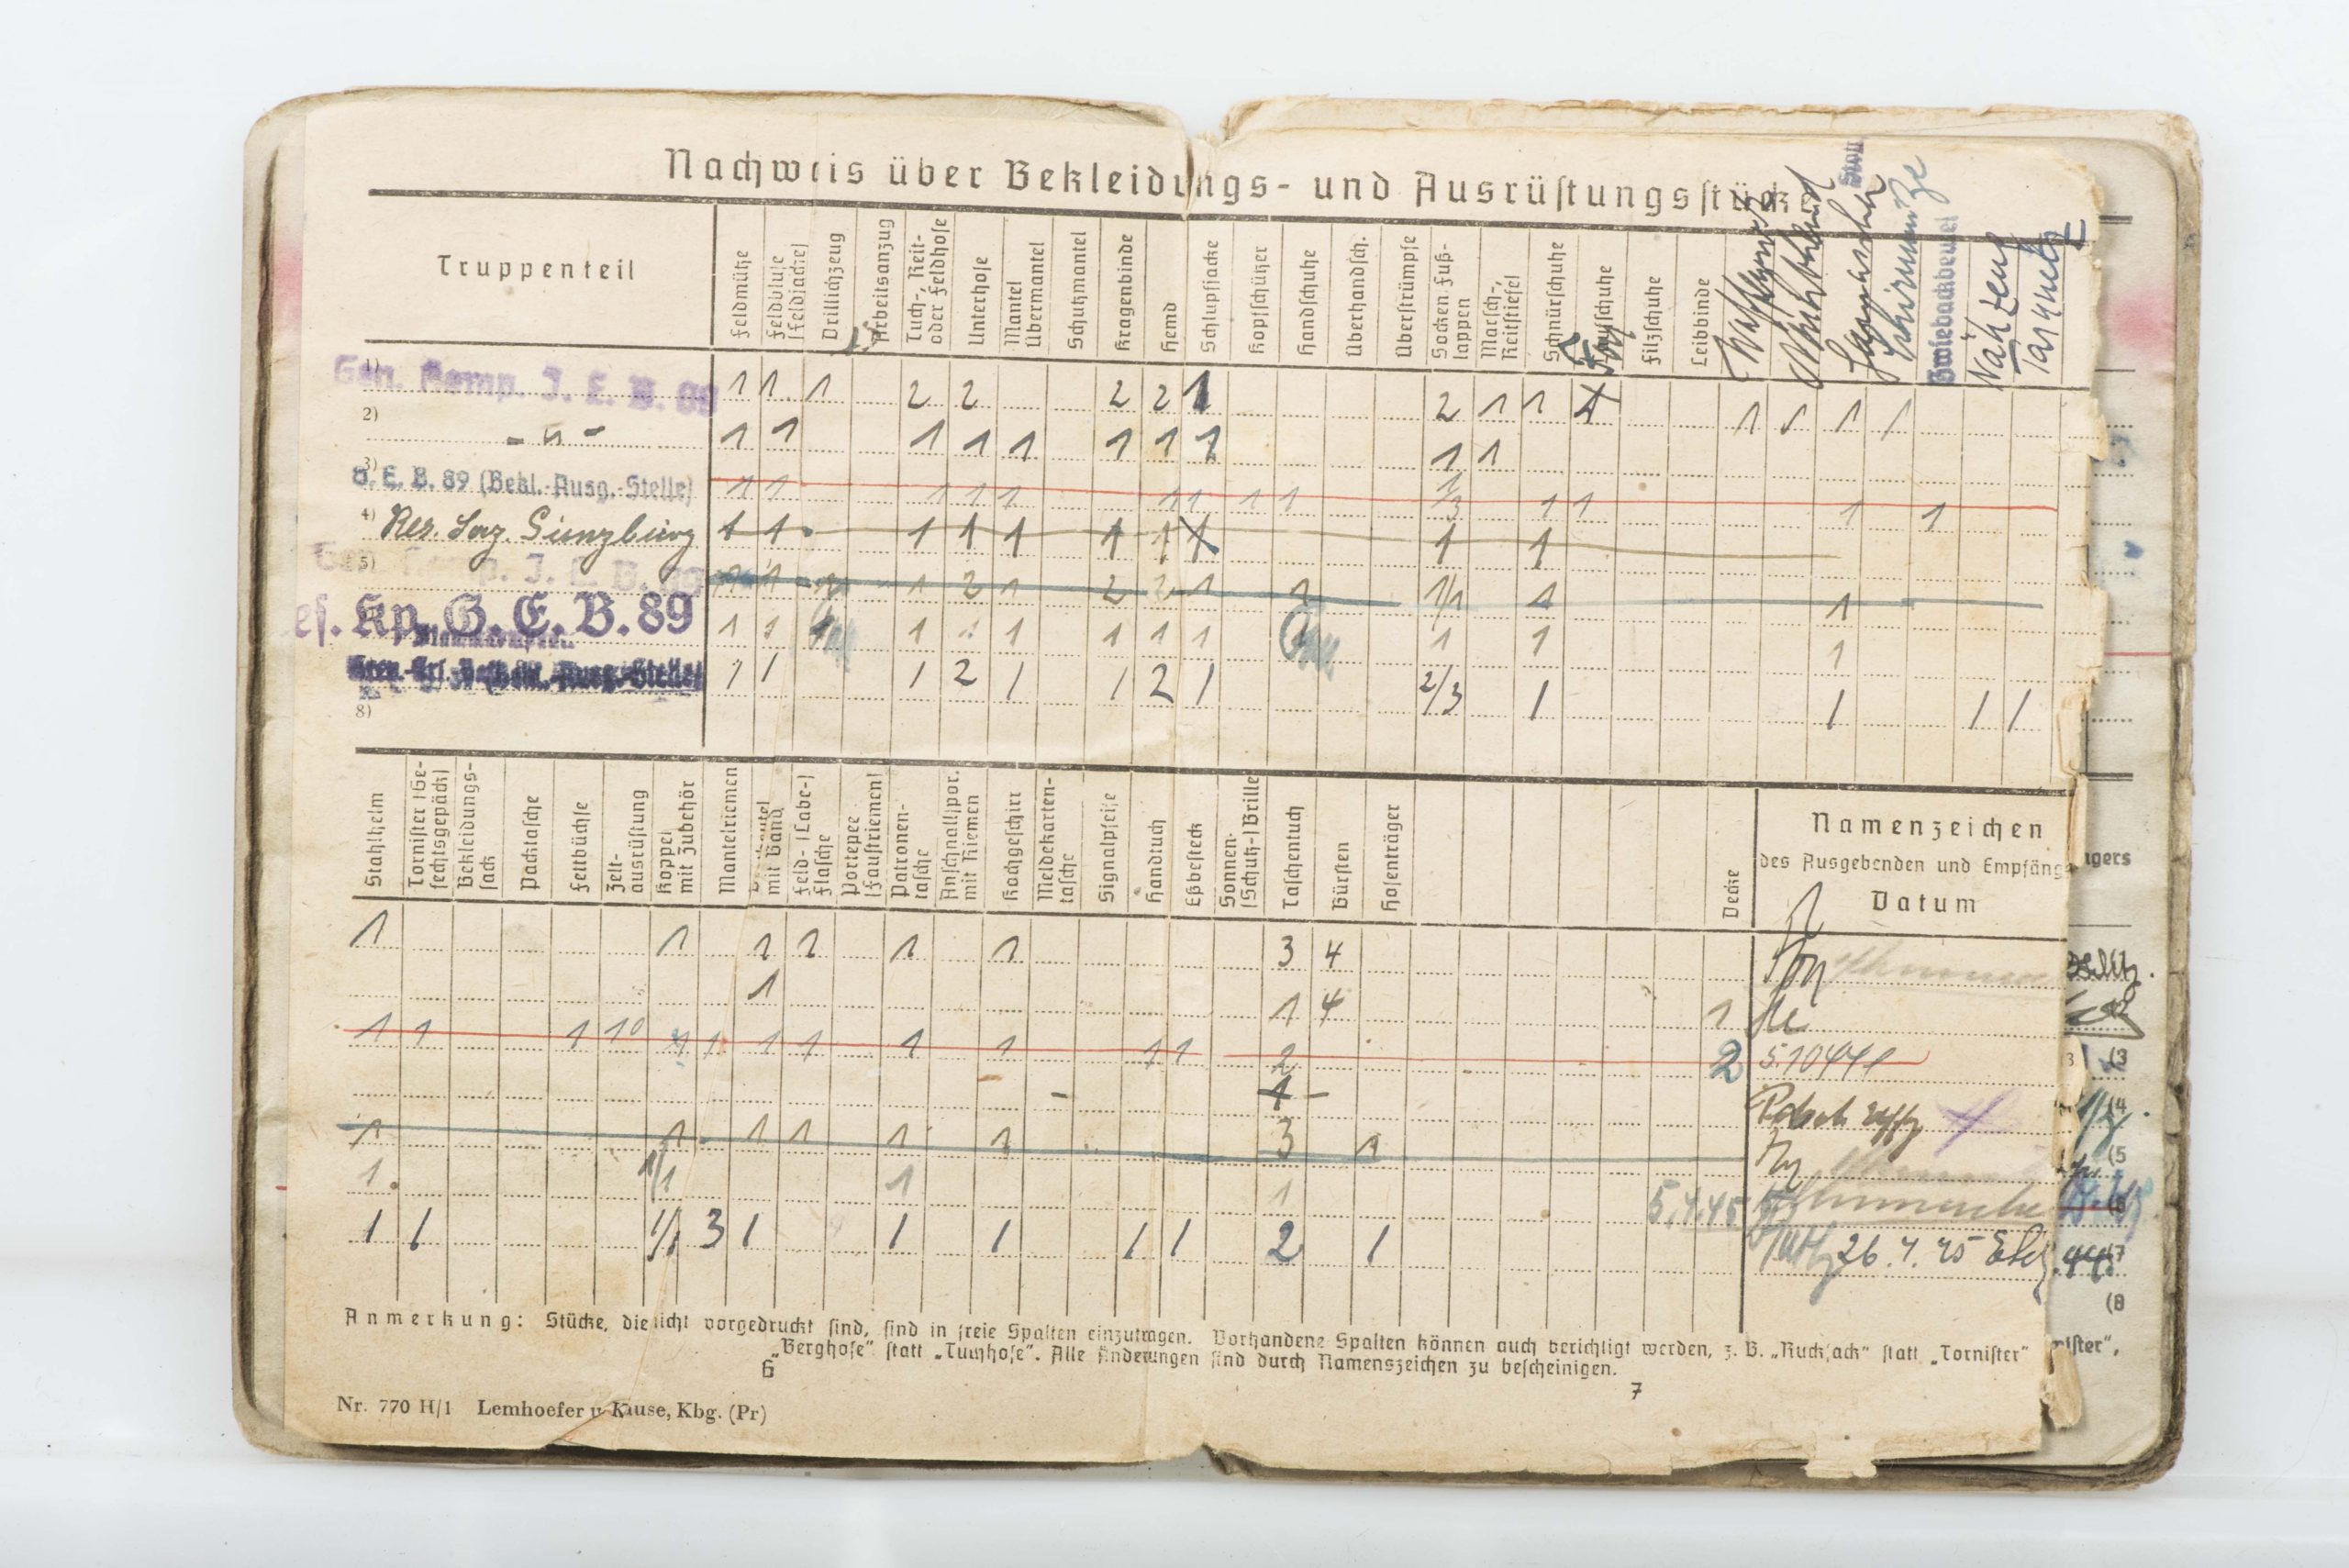 Nachweis über Bekleidungs- und Ausrüstungsstück
Truppenteil
Feldmütze
Feldbluse (Feldjacke)
Drillichzeug
Arbeitsanzug
Tuch-, Reit- oder Feldhose
Unterhose
Mantel Übermantel
Schutzmantel
Kragenbinde
Hemd
Schlupfjacke
Kopfschützer
Handschuhe
Überhandsch.
Überstrümpfe
Socken Fuß-lappen
Marsch-, Reitstiefel
Schnürschuhe
schuhe
Filzschuhe
Leibbinde
Zwiebackbeutel
Nähzeug
1) Gen. Komp. J. E. B. 89 1 1 1 2 2 2 2 1 2 1 1 1 1 1 1
2) - " - 1 1 1 1 1 1 1 1 1 1
3) G. E. B. 89 (Bekl.-Ausg.-Stelle) 1 1 1 1 1 1 1 1 1 1 1 1 1
4) Res. Laz. Günzburg 1 1 1 1 1 1 1 1 1
5) Gen. Komp. J. E. B. 89 1 1 1 2 1 2 2 1 1 1/1 1 1
Kp. G. E. B. 89 1 1 1 1 1 1 1 1 1 1
Ausg.-Stelle 1 1 1 2 1 1 2 1 2/3 1 1 1 1
8)
Stahlhelm
Tornister (Ge-fechtsgepäck)
Bekleidungs-sack
Packtasche
Fettbüchse
Zelt-ausrüstung
Koppel mit Zubehör
Mantelriemen
mit Band
Feld- (Labe-) flasche
Portepee (Faustriemen)
Patronen-tasche
Anschnallspor. mit Riemen
Kochgeschirr
Meldekarten-tasche
Signalpfeife
Handtuch
Eßbesteck
Sonnen- (Schutz-) Brille
Taschentuch
Bürsten
Hosenträger
Decke
Namenzeichen
des Ausgebenden und Empfäng
Datum
1 1 1 1 1 1 3 4
1 1 4 1
1 1 1 1 1 1 1 1 1 1 1 2 2 5.10.44
1 1 1 1 1 1 3 1
1 1/1 1 1 5.4.45
1 1 1/1 3 1 1 1 1 1 2 1 26.4.45
igers
(3
(4
(5
(8
nister",
Anmerkung: Stücke, die nicht vorgedruckt sind, sind in freie Spalten einzutragen. Vorhandene Spalten können auch berichtigt werden, z. B. „Rucksack" statt „Tornister"
„Berghose" statt „Tuchhose". Alle Änderungen sind durch Namenszeichen zu bescheinigen.
6
7
Nr. 770 H/1 Lemhoefer u. Krause, Kbg. (Pr)